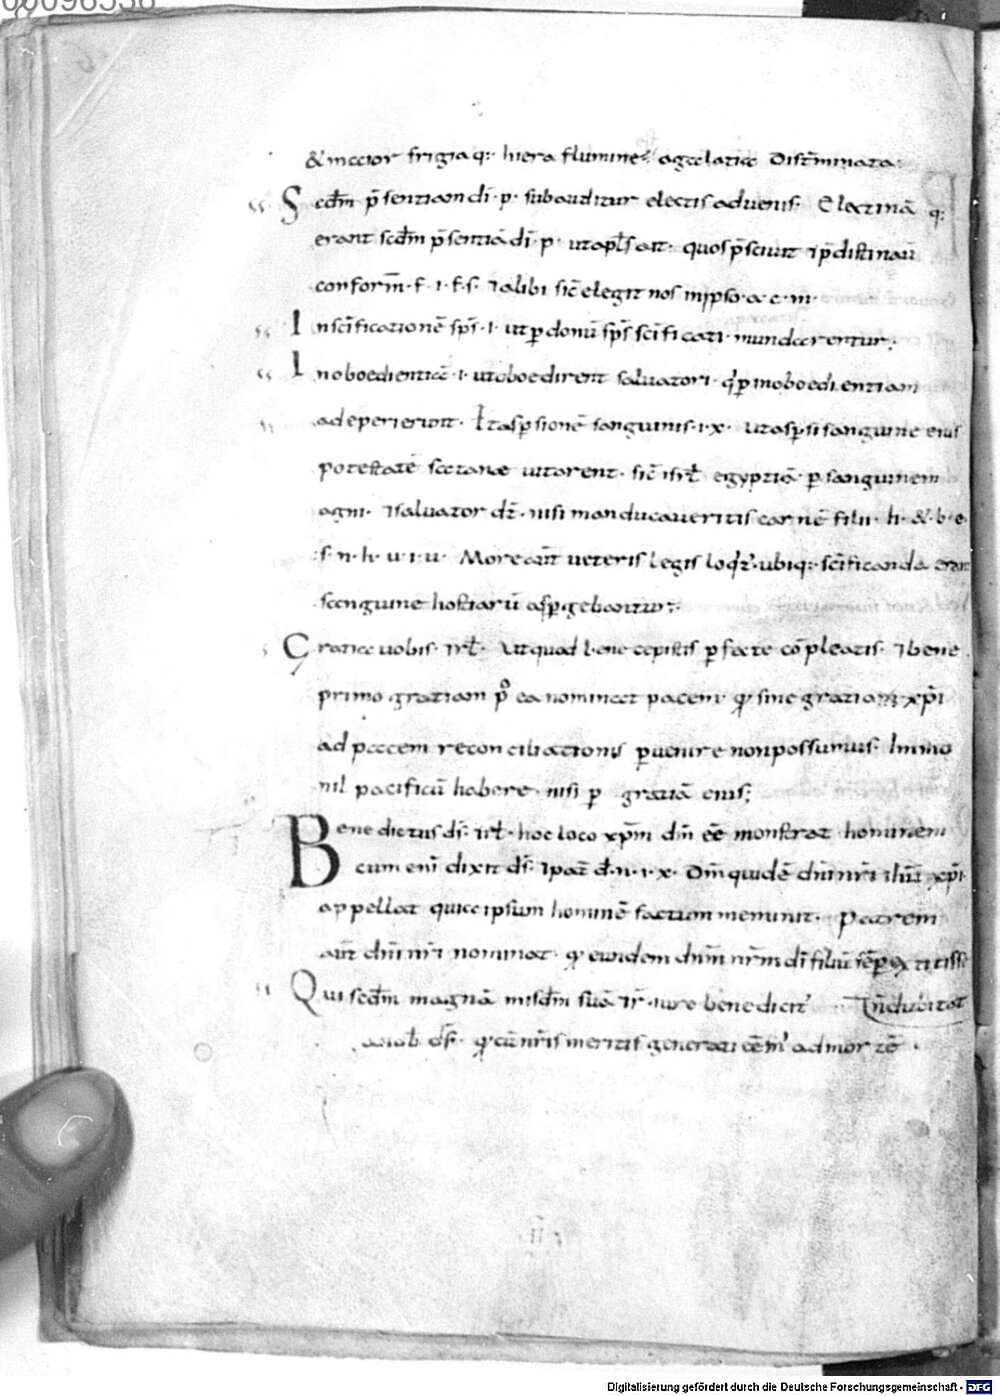 & maior frigia q: hiera flumine a galatia disterminata:
Scdm p̄sentiam dī · p · subauditur electis aduenis · Electi nā q:
erant scdm p̄sentiā dī · p · ut apls ait · quos p̄sciuit & p̄distinauit
conform̄ · f · i · f · s · 7 alibi sic̄ elegit nos in ipso · a · c · m ·
In sc̄ificationē sp̄s · i · ut p donū sp̄s sc̄ificati mundarentur;
In oboedientia · i · ut oboedirent saluatori · q̄ p inoboedientiam
adę perierunt · Et aspsionē sanguinis · i · x · ut aspsi sanguine eius
potestatē satanae uitarent · sic̄ isrł egyptiā p sanguinem
agni · 7 saluator dr̄ · nisi manducaueritis carnē filii · h · & · b · e ·
s · n · h · u · i · u · More aūt ueteris legis loq̄r · ubi q: sc̄ificanda erant
sanguine hostiarū aspgebantur;
Gratia uobis · rł · Ut quod bene cepistis pfecte cōpleatis · 7 bene
primo gratiam p̊ ea nominat pacem · q̄ sine gratia xp̄i
ad pacem reconciliationis puenire non possumus · Immo
nil pacificū habere · nisi p gratiā eius;
Benedictus ds̄ · rł · hoc loco xp̄m dm̄ eē monstrat · hominem
cum enī dixit ds̄ · 7 pat̄ d · n · i · x · Dm̄ quidē dn̄i nr̄i ihū xp̄i
appellat quia ipsum hominē factum meminit · Patrem
aūt dn̄i nr̄i nominat · q̄ eundem dn̄m nr̄m dī filiū sēp extitisse
Qui scdm magnā misdm suā · r̄ · iure benedicit̄ n̄ dubitat
ds̄ · q̄ cū nr̄is meritis generati eēm̄ ad mortē ·
Digitalisierung gefördert durch die Deutsche Forschungsgemeinschaft - DFG